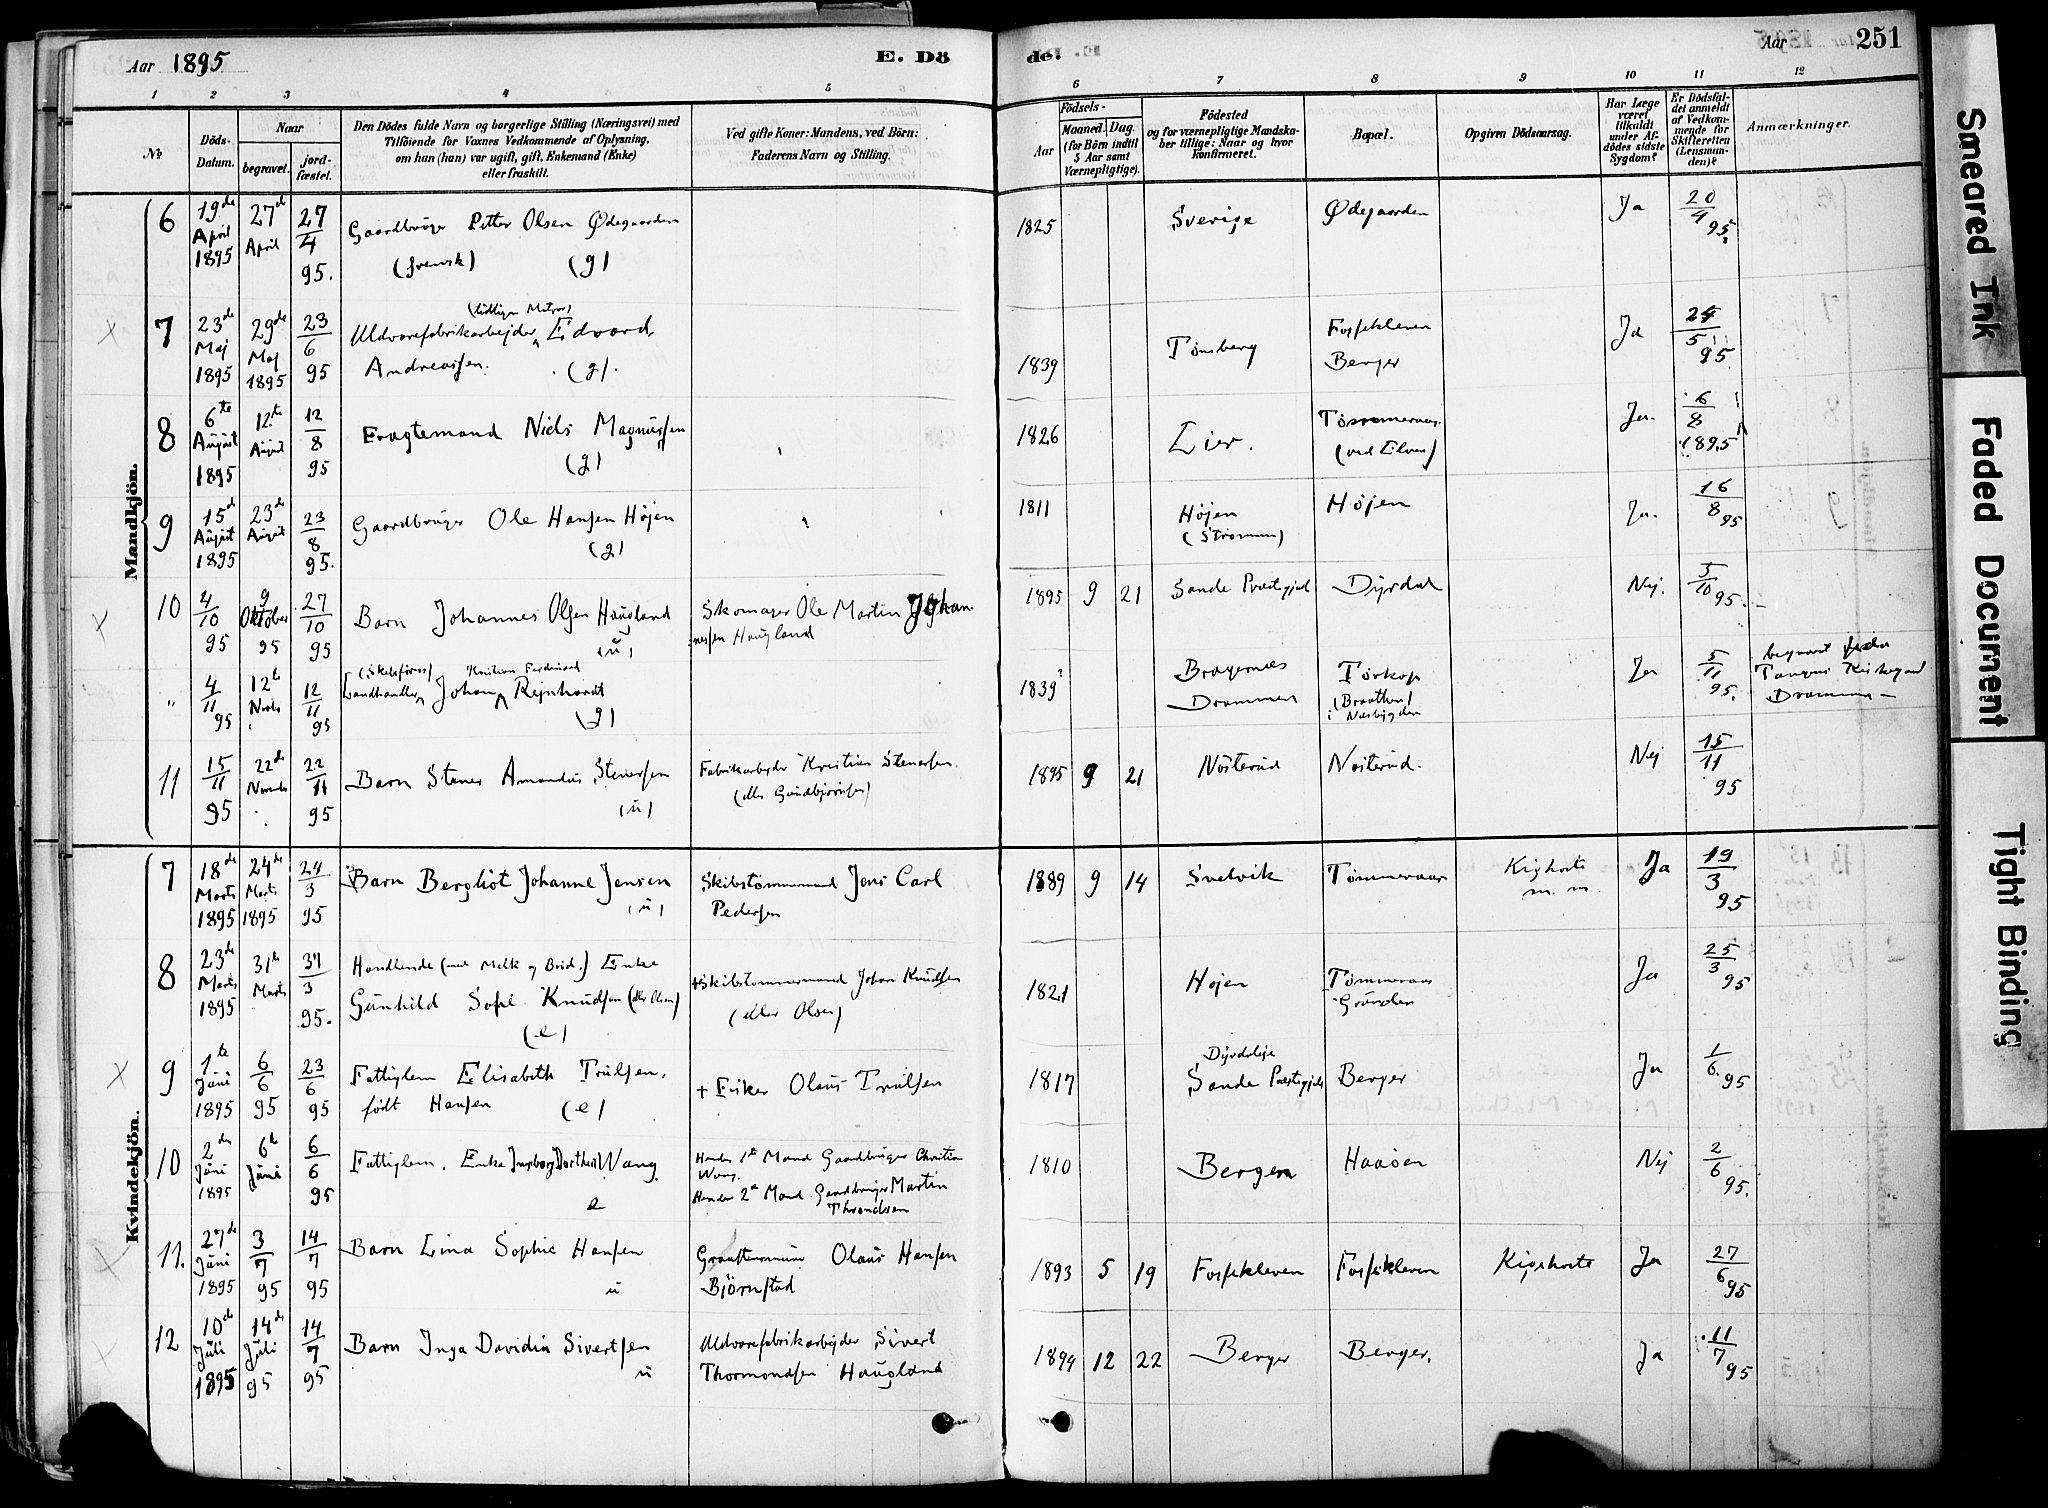 Aar 1895
E. Dö
de.
Aar
251
1 2 3 4 5
6 7 8 9 10 11 12
No
Döds-
Datum.
Naar
begravet.
jord-
fæstet.
Den Dödes fulde Navn og borgerlige Stilling (Næringsvei) med
Tilföiende for Voxnes Vedkommende af Oplysning,
om han (hun) var ugift, gift, Enkemand (Enke)
eller fraskilt.
Ved gifte Koner: Mandens, ved Börn:
Faderens Navn og Stilling.
Födsels-
Aar
Maaned. Dag.
(for Börn indtil
5 Aar samt
Værnepligtige).
Födested
og for værnepligtige Mandska-
ber tillige: Naar og hvor
konfirmeret.
Bopæl.
Opgiven Dödsaarsag.
Har Læge
været
tilkaldt
under Af-
dödes sidste
Sygdom?
Er Dödsfal-
det anmeldt
af Vedkom-
mende for
Skifteretten
(Lensman-
den)?
Anmærkninger.
Mandkjön.
6 19de April 1895 27d April 27/4 95. Gaardbruger Petter Olsen Ødegaarden
(svensk) (g)
1825 Sverige Ødegaarden Ja 20/4 95.
7 23de Maj 1895 29de Maj 1895 23/6 95 Uldvarefabrikarbejder (tidligere Matros) Edvard
Andreassen. (g).
1839 Tønsberg Fossekleven
Berger Ja 24/5 95
8 6te August 1895 12te August 12/8 95 Fragtemand Niels Magnussen
(g)
1826 Lier. Tømmeraas
(ved Elven) Ja. 6/8 1895
9 15d August 1895 23de August 23/8 95. Gaardbruger Ole Hansen Højen
(g)
1811 Højen
(Strømmen) Højen Ja. 16/8 95
10 4/10 95 9 Oktober 95 27/10 95 Barn Johannes Olsen Haugland
(u)
Skomager Ole Martin Johan-
nessen Haugland
1895 9 21 Sande Præstegjeld Dyrdal Nej. 5/10 95.
" 4/11 95 12te Novbr 12/11 95 Landhandler (Skibsfører) Johan Kristian Ferdinand Rejnhardt
(g)
1839 Bragernæs
Drammen Tørkop
(Braathen)
i Næsbygden Ja 5/11 95. begravet
Tangen Kirkegaard
Drammen
11 15/11 95 22de Novembr 22/11 95 Barn Stener Amandus Stenersen
(u)
Fabrikarbejder Kristian Stenersen.
(eller Gundbjørnsen)
1895 9 21 Nøsterud Nøsterud. Nej 15/11 95
Kvindekjön.
7 18de Marts 1895 24de Marts 1895 24/3 95 Barn Bergliot Johanne Jensen
(u)
Skibstømmermand Jens Carl
Pedersen
1889 9 14 Svelvik Tømmeraas Kighoste
m. m. Ja 19/3 95
8 23de Marts 1895 31te Marts 31/3 95. Handlende (med Melk og Brød.) Enke
Gunhild Sofie Knudsen (eller Olsen)
(e)
+ Skibstømmermand Johan Knudsen
(eller Olsen)
1821 Højen Tømmeraas
Grunden Ja 25/3 95
9 1te Juni 1895 6/6 95 23/6 95 Fattiglem Elisabeth Trulsen.
født Hansen (e)
+ Fisker Olaus Trulsen
1817 Dyrdalseje
Sande Præstegjeld Berger Ja 1/6 95
10 2den Juni 1895 6te Juni 6/6 95 Fattiglem. Enke Ingeborg Dorthea Wang.
e
Hendes 1te Mand Gaardbruger Christen
Wang.
Hendes 2d Mand. Gaardbruger Martin
Throndsen
1810 Bergen Haaøen Nej 2/6 95.
11. 27de Juni 1895 3/7 95 14/7 95 Barn Lina Sophie Hansen
u
Olaus Hansen
Bjørnstad
1893 5 19 Fossekleven Fossekleven Kighoste Ja 27/6 95
12 10de Juli 1895 14de Juli 95 14/7 95 Barn Inga Davidia Sivertsen
u
Uldvarefabrikarbejder Sivert
Thormondsen Haugland
1894 12 22 Berger Berger. Ja 11/7 95
Smeared Ink
Faded Document
Tight Binding